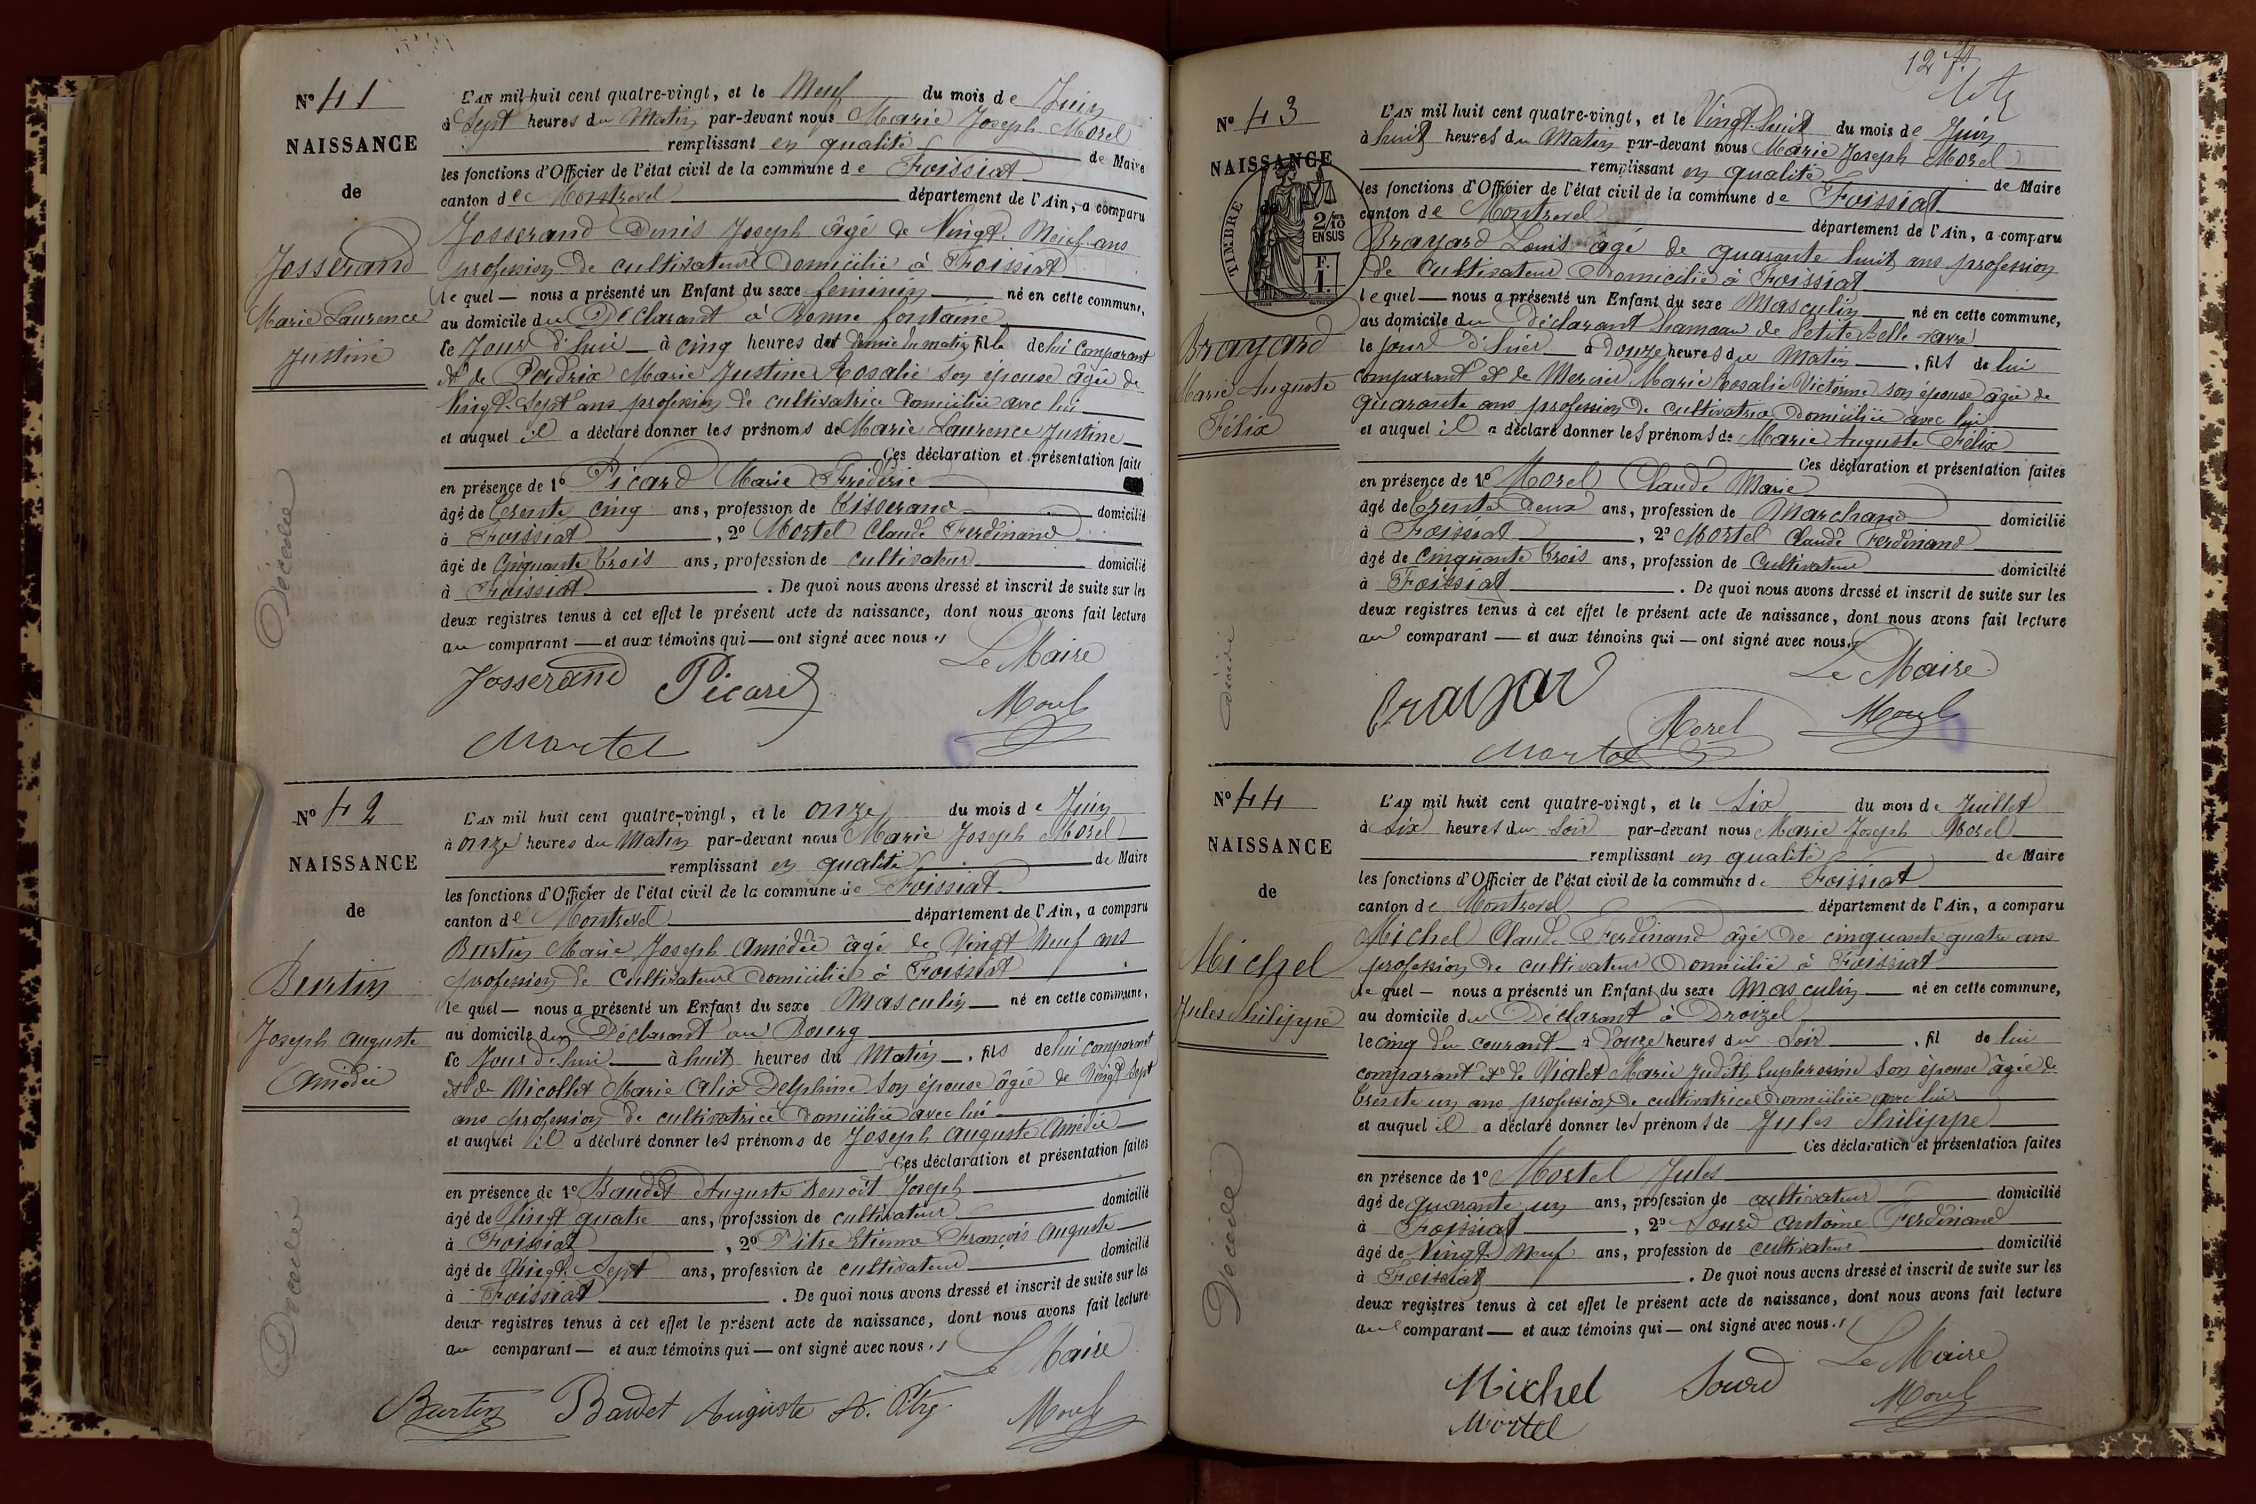 Nº 41
NAISSANCE
de
Josserand
Marie Laurence
Justine
Décédée
L'AN mil huit cent quatre-vingt, et le Neuf du mois de Juin
à Sept heures du Matin par-devant nous Marie Joseph Morel
remplissant en qualité de Maire
les fonctions d'Officier de l'état civil de la commune de Foissiat
canton de Montrevel département de l'Ain, a comparu
Josserand Denis Joseph âgé de Vingt Neuf ans
profession de cultivateur domicilié à Foissiat
lequel — nous a présenté un Enfant du sexe feminin né en cette commune,
au domicile du Déclarant à Bonne fontaine
le Jour d'hui à cinq heures et demie du matin fille de lui comparant
et de Perdrix Marie Justine Rosalie son épouse âgée de
Vingt-Sept ans profession de cultivatrice domiciliée avec lui
et auquel il a déclaré donner les prénoms de Marie Laurence Justine
Ces déclaration et présentation faite
en présence de 1º Picard Marie Frédéric
âgé de trente cinq ans, profession de Tisserand domicilié
à Foissiat, 2º Mortel Claude Ferdinand
âgé de Cinquante trois ans, profession de cultivateur domicilié
à Foissiat. De quoi nous avons dressé et inscrit de suite sur les
deux registres tenus à cet effet le présent acte de naissance, dont nous avons fait lecture
au comparant — et aux témoins qui — ont signé avec nous.
Le Maire
Josserand Picard Morel
Mortel
Nº 42
NAISSANCE
de
Burtin
Joseph Auguste
Amédée
Décédé
L'AN mil huit cent quatre-vingt, et le onze du mois de Juin
à onze heures du Matin par-devant nous Marie Joseph Morel
remplissant en qualité de Maire
les fonctions d'Officier de l'état civil de la commune de Foissiat
canton de Montrevel département de l'Ain, a comparu
Burtin Marie Joseph Amédée âgé de Vingt Neuf ans
profession de Cultivateur domicilié à Foissiat
lequel — nous a présenté un Enfant du sexe Masculin né en cette commune,
au domicile du Déclarant au Bourg
le Jour d'hui à huit heures du Matin, fils de lui comparant
et de Nicollet Marie Alix Delphine son épouse âgée de Vingt Sept
ans profession de cultivatrice domiciliée avec lui
et auquel il a déclaré donner les prénoms de Joseph Auguste Amédée
Ces déclaration et présentation faites
en présence de 1º Baudet Auguste Benoît Joseph
âgé de Vingt quatre ans, profession de cultivateur domicilié
à Foissiat, 2º Pitre Etienne François Auguste
âgé de Vingt Sept ans, profession de cultivateur domicilié
à Foissiat. De quoi nous avons dressé et inscrit de suite sur les
deux registres tenus à cet effet le présent acte de naissance, dont nous avons fait lecture
au comparant — et aux témoins qui — ont signé avec nous.
Le Maire
Burtin Baudet Auguste Morel
Nº 43
NAISSANCE
TIMBRE
2/10
EN SUS
Brayard
Marie Auguste
Félix
Décédé
L'AN mil huit cent quatre-vingt, et le Vingt-huit du mois de Juin
à huit heures du Matin par-devant nous Marie Joseph Morel
remplissant en qualité de Maire
les fonctions d'Officier de l'état civil de la commune de Foissiat
canton de Montrevel département de l'Ain, a comparu
Brayard Louis âgé de quarante huit ans profession
de Cultivateur domicilié à Foissiat
lequel — nous a présenté un Enfant du sexe Masculin né en cette commune,
au domicile du déclarant hameau de Petite Belle
le jour d'hier à Douze heures du Matin, fils de lui
comparant et de Mercier Marie Rosalie Victorine son épouse âgée de
quarante ans profession de cultivatrice domiciliée avec lui
et auquel il a déclaré donner les prénoms de Marie Auguste Félix
Ces déclaration et présentation faites
en présence de 1º Morel Claude Marie
âgé de trente deux ans, profession de Marchand domicilié
à Foissiat, 2º Mortel Claude Ferdinand
âgé de Cinquante trois ans, profession de Cultivateur domicilié
à Foissiat. De quoi nous avons dressé et inscrit de suite sur les
deux registres tenus à cet effet le présent acte de naissance, dont nous avons fait lecture
au comparant — et aux témoins qui — ont signé avec nous.
Le Maire
Brayard Morel Morel
Mortel
Nº 44
NAISSANCE
de
Michel
Jules Philippe
Décédé
L'AN mil huit cent quatre-vingt, et le Six du mois de Juillet
à Six heures du Soir par-devant nous Marie Joseph Morel
remplissant en qualité de Maire
les fonctions d'Officier de l'état civil de la commune de Foissiat
canton de Montrevel département de l'Ain, a comparu
Michel Claude Ferdinand âgé de cinquante quatre ans
profession de cultivateur domicilié à Foissiat
lequel — nous a présenté un Enfant du sexe Masculin né en cette commune,
au domicile du Déclarant à Droizel
le cinq du courant à Douze heures du soir, fil de lui
comparant et de Vialet Marie Judith Euphrosine son épouse âgée de
trente un ans profession de cultivatrice domiciliée avec lui
et auquel il a déclaré donner les prénoms de Jules Philippe
Ces déclaration et présentation faites
en présence de 1º Mortel Jules
âgé de quarante un ans, profession de cultivateur domicilié
à Foissiat, 2º Sourd Antoine Ferdinand
âgé de Vingt Neuf ans, profession de cultivateur domicilié
à Foissiat. De quoi nous avons dressé et inscrit de suite sur les
deux registres tenus à cet effet le présent acte de naissance, dont nous avons fait lecture
au comparant — et aux témoins qui — ont signé avec nous.
Le Maire
Michel Sourd Morel
Mortel